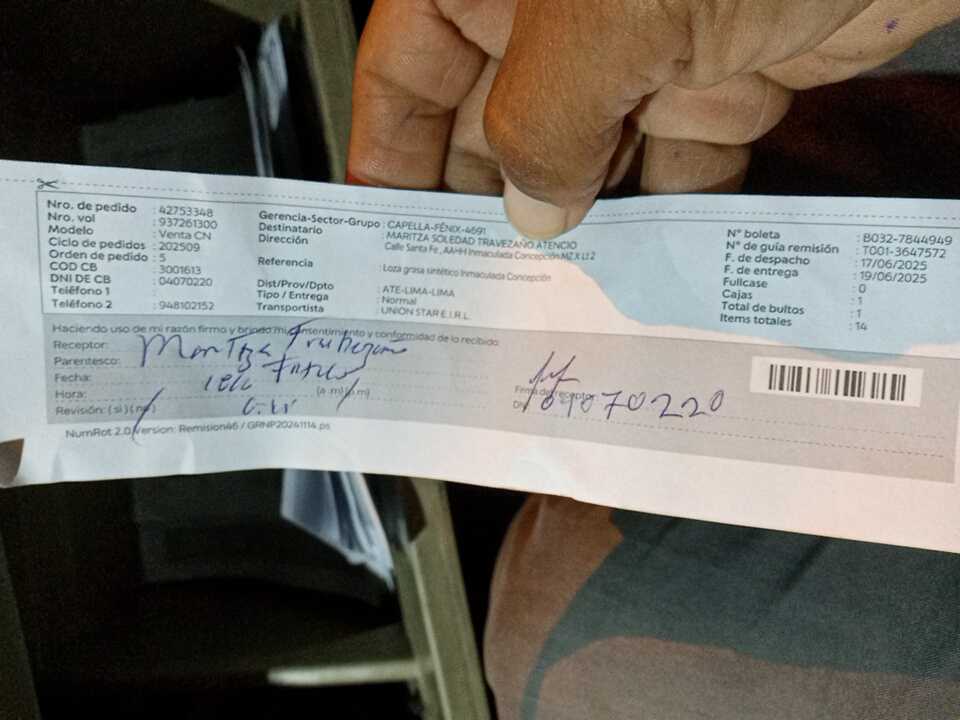 Nro. de pedido : 42753348
Nro. vol : 937261300
Modelo : Venta CN
Ciclo de pedidos : 202509
Orden de pedido : 5
COD CB : 3001613
DNI DE CB : 04070220
Teléfono 1 :
Teléfono 2 : 948102152
Gerencia-Sector-Grupo : CAPELLA-FÉNIX-4691
Destinatario : MARITZA SOLEDAD TRAVEZAÑO ATENCIO
Dirección Calle Santa Fe , AAHH Inmaculada Concepción MZ X Lt 2
Referencia : Loza grasa sintético Inmaculada Concepción
Dist/Prov/Dpto : ATE-LIMA-LIMA
Tipo / Entrega : Normal
Transportista : UNION STAR E.I.R.L.
N° boleta : B032-7844949
N° de guía remisión : T001-3647572
F. de despacho : 17/06/2025
F. de entrega : 19/06/2025
Fullcase : 0
Cajas : 1
Total de bultos : 1
Items totales : 14
Haciendo uso de mi razón firmo y brindo mi consentimiento y conformidad de lo recibido
Receptor: Maritza
Parentesco:
Fecha:
Hora: (a .m) (p.m)
Revisión: ( si ) ( no )
Firma de receptor:
DNI 04070220
NumRot 2.0 Version: Remision46 / GRNP20241114.ps